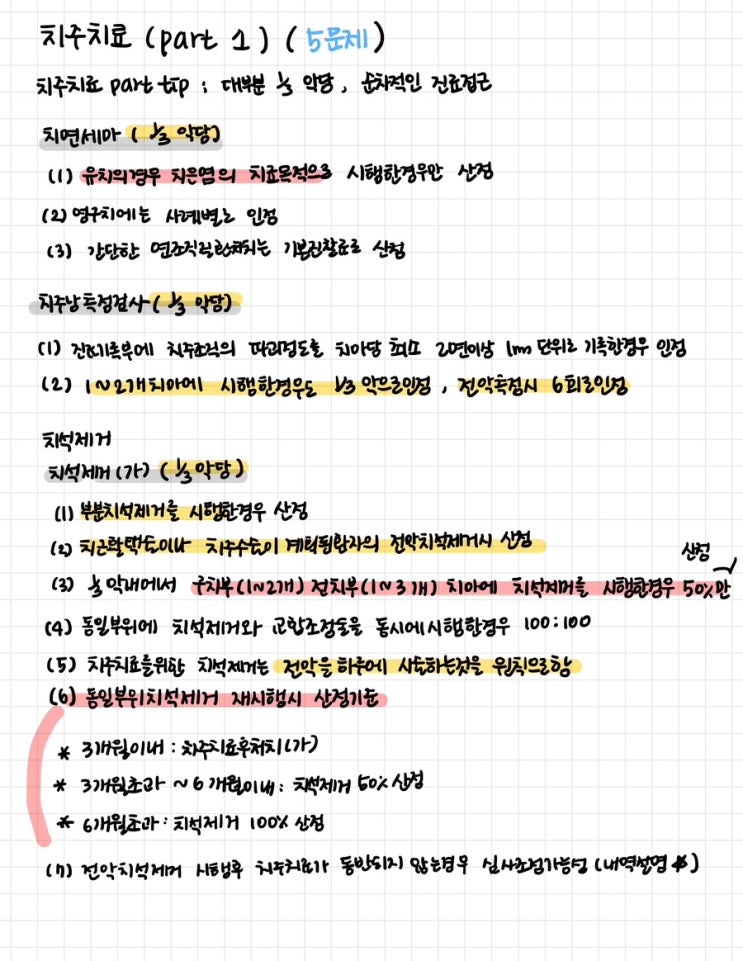 치주치료 (part 1) (5문제)
치주치료 part tip : 대부분 1/3 악당, 순차적인 진료접근
치면세마 (1/3 악당)
(1) 유치의경우 치은염의 치료목적으로 시행한경우만 산정
(2) 영구치에는 사례별로 인정
(3) 간단한 연조직적관처치는 기본진찰료로 산정
치주낭측정검사 (1/3 악당)
(1) 진료기록부에 치주조직의 파괴정도를 치아당 최소 2면이상 1m 단위로 기록한경우 인정
(2) 1~2개치아에 시행한경우도 1/3 악으로인정, 전악측정시 6회로인정
치석제거
치석제거 (가) (1/3 악당)
(1) 부분치석제거를 시행한경우 산정
(2) 치근활택술이나 치주수술이 계획된환자의 전악치석제거시 산정
(3) 1/3 악내에서 구치부(1~2개) 전치부(1~3개) 치아에 치석제거를 시행한경우 50%만 산정
(4) 동일부위에 치석제거와 교합조정술을 동시에시행한경우 100:100
(5) 치주치료를위한 치석제거는 전악을 하루에 시술하는것을 원칙으로함
(6) 동일부위치석제거 재시행시 산정기준
* 3개월이내 : 치주치료후처치(가)
* 3개월초과 ~ 6개월이내 : 치석제거 50% 산정
* 6개월초과 : 치석제거 100% 산정
(7) 전악치석제거 시행후 치주치료가 동반되지 않는경우 심사조정가능성 (내역설명 *)